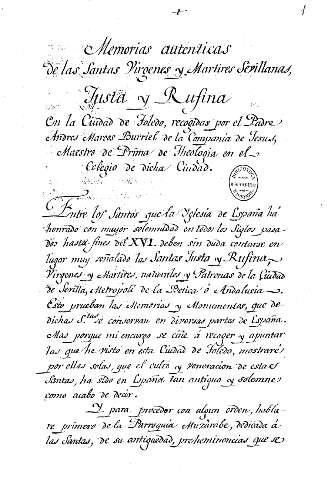 1
Memorias autenticas
de las Santas Virgenes y Martires Sevillanas,
Justa y Rufina
En la Ciudad de Toledo, recogidas por el Padre
Andres Marcos Burriel de la Compania de Jesus,
Maestro de Prima de Theologia en el
Colegio de dicha Ciudad.
Entre los Santos que la Yglesia de España há
honrado con mayor solemnidad en todos los Siglos pasa-
dos hasta fines del XVI. deben sin duda contarse en
lugar muy señalado las Santas Justa y Rufina,
Virgenes y Martires, naturales y Patronas de la Ciudad
de Sevilla, Metropoli de la Betica ó Andalucia.
Esto prueban las Memorias y Monumentos, que de
dichas S.tas se conservan en diversas partes de España.
Mas porque mi encargo se ciñe à recoger y apuntar
las que he visto en esta Ciudad de Toledo, mostraré
por ellas solas, que el culto y veneracion de estas
Santas, ha sido en España tan antigua y solemne
como acabo de decir.
Y para proceder con algun orden, habla-
re primero de la Parroquia Muzarabe, dedicada á
las Santas, de su antiguedad, preheminencias que se